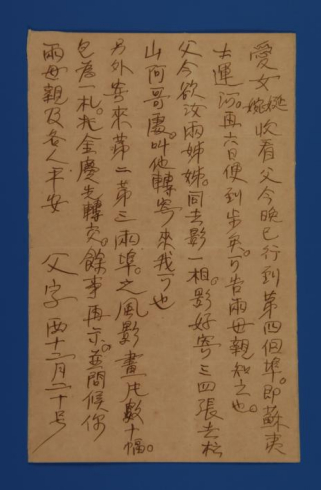 愛女婉娫收看父今晚已行到第四個埠。即蘇夷
士運河。再六日便到步矣。可告兩母親知之也。
父今欲汝兩姊妹。同去影一相。影好寄三四張去松
山阿哥處。叫他轉寄來我可也
另外寄來第二第三兩埠。之風影畫片數十幅。
包為一札。托金慶先轉交。餘事再示。並問候你
兩母親及各人平安
父字 一西十二月二十号